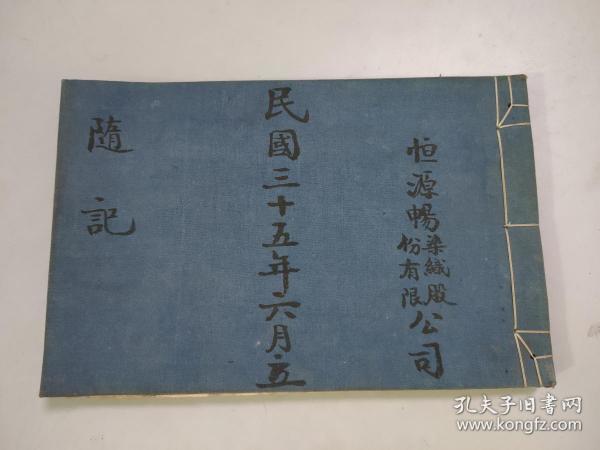 恒源暢染織股份有限公司
民國三十五年六月立
隨記
孔夫子旧书网
www.kongfz.com